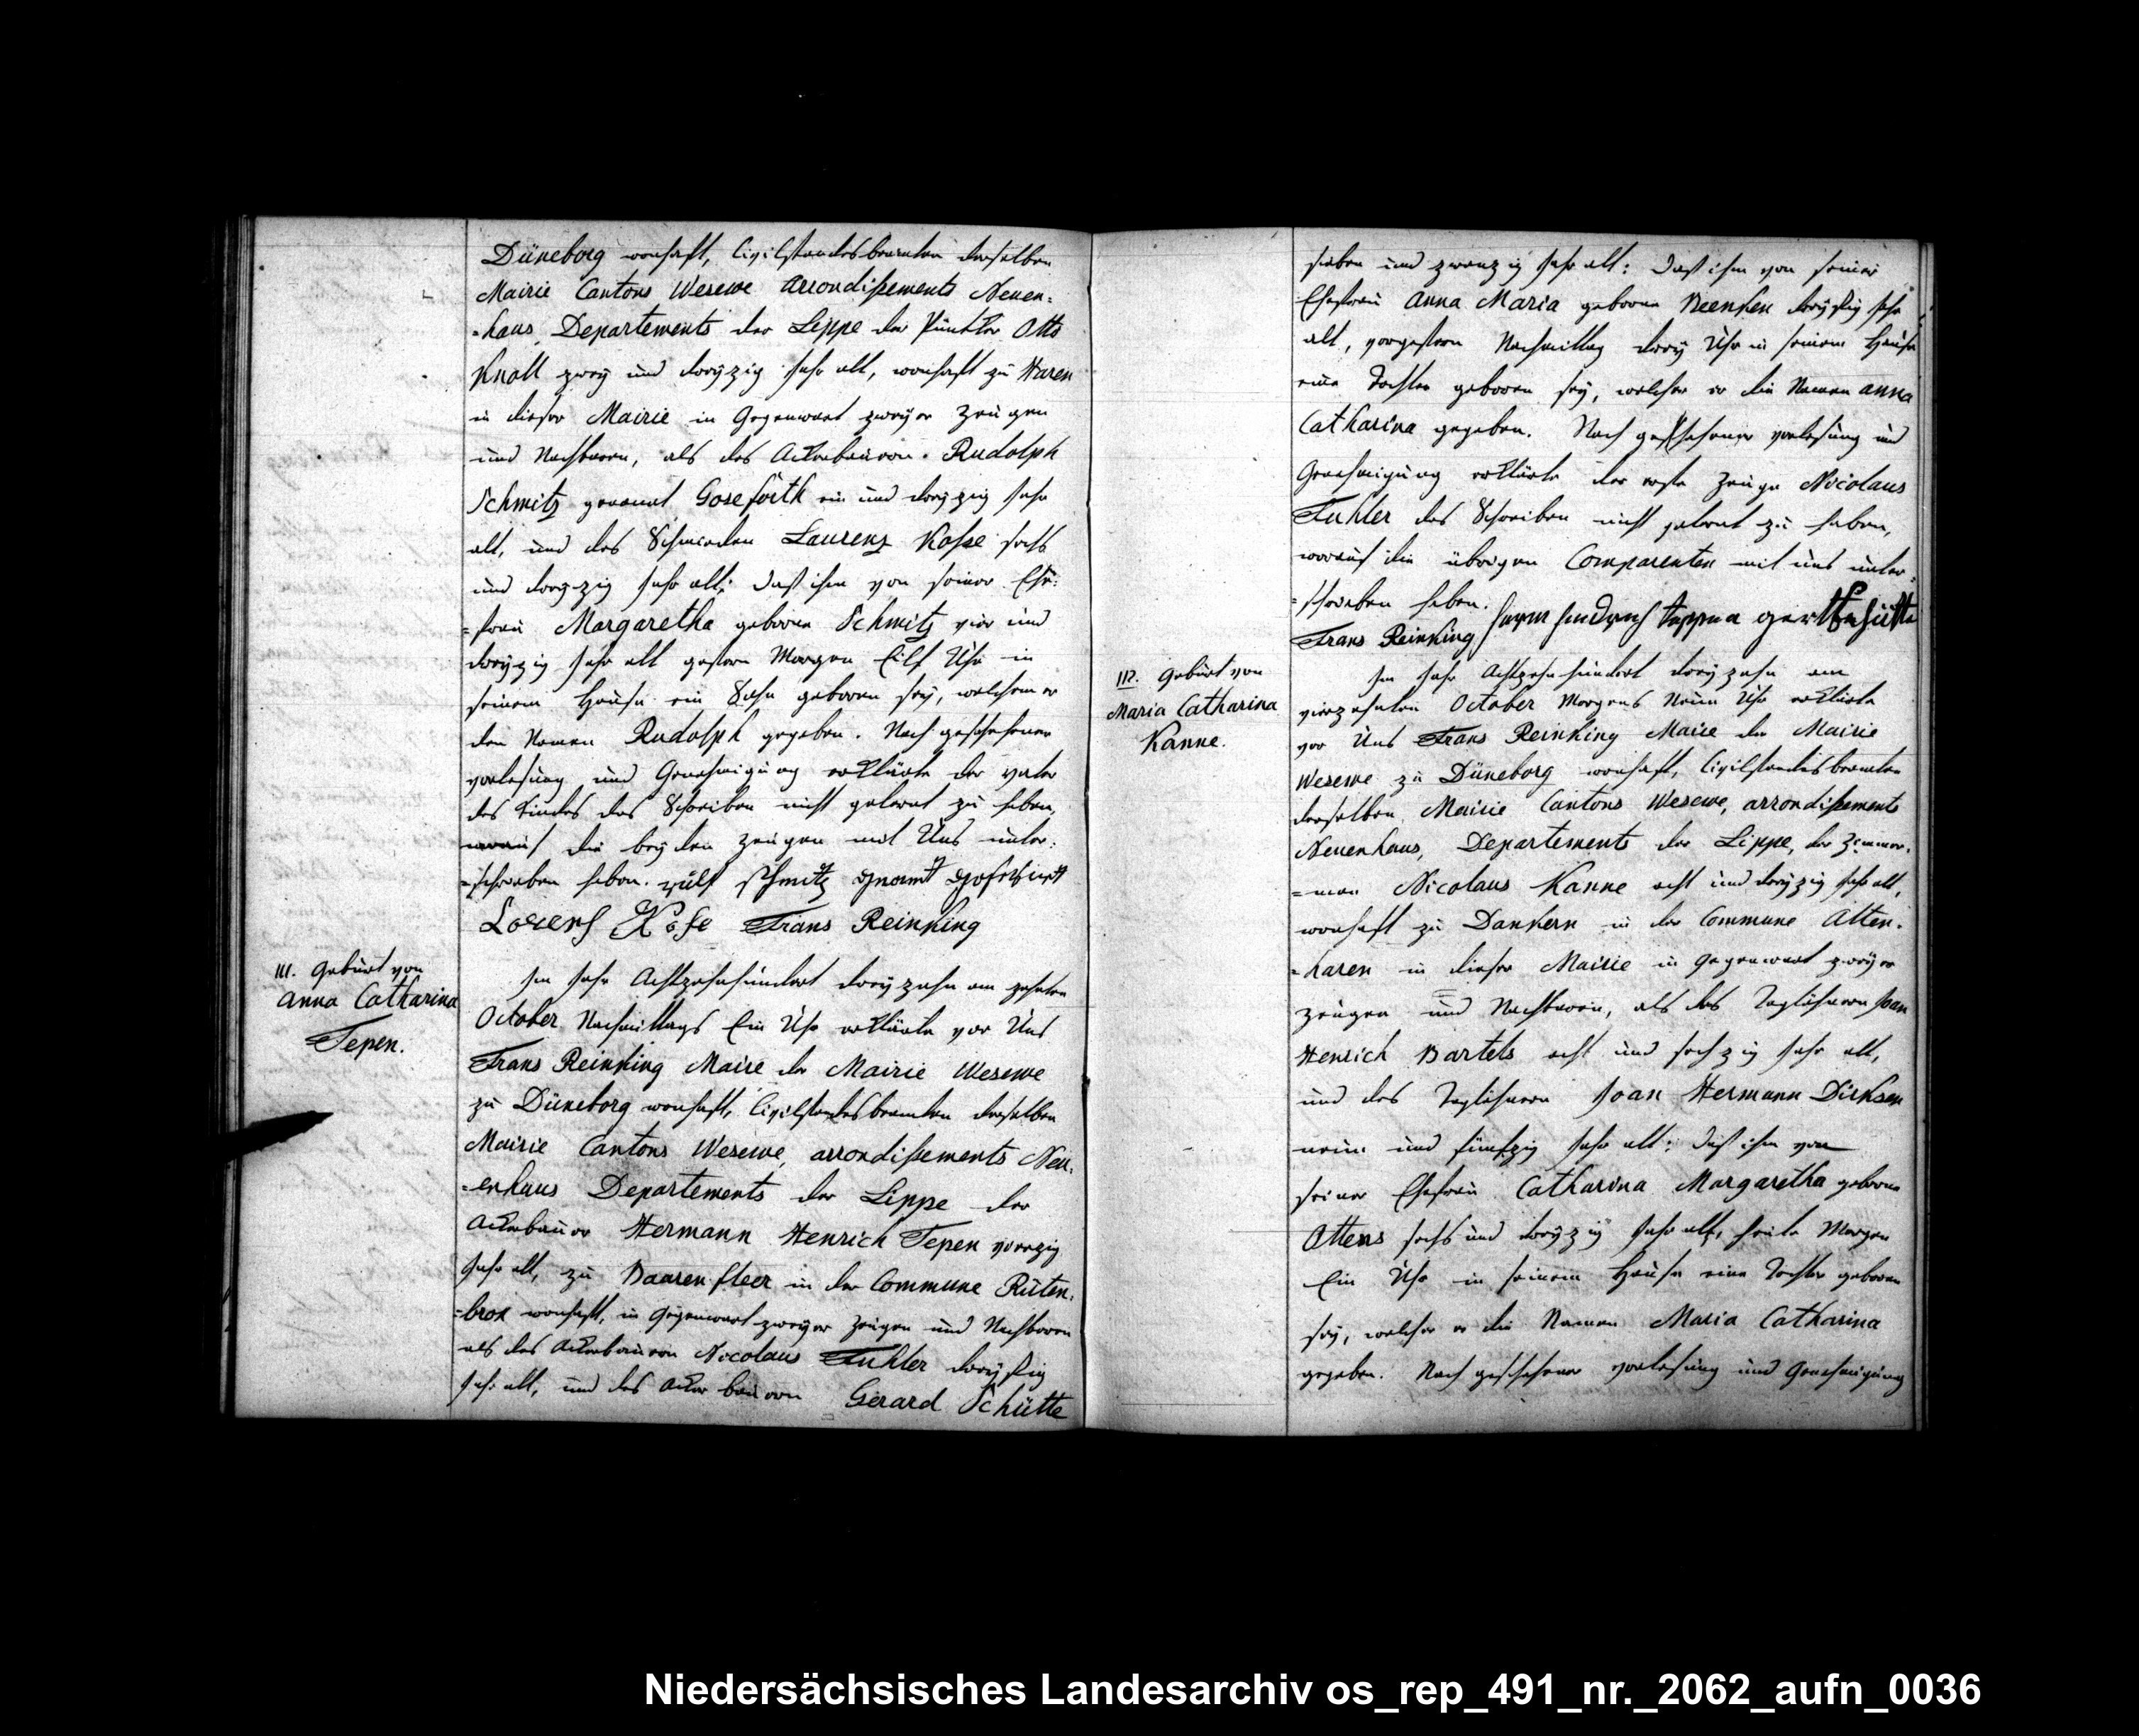 Düneborg wonhaft, Civilstandesbeamten derselben
Mairie Cantons Wesewe Arrondißements Neuen-
-haus, Departements der Lippe der Otto
Knoll zwey und dreyzig Jahr alt, wonhaft zu Haren
in dieser Mairie in Gegenwart zweyer Zeugen
und Nachbaren, als des Ackerbauren Rudolph
Schmitz genannt Gosejörth ein und dreyzig Jahr
alt, und des Schmieden Laurenz Koße sechs
und dreyzig Jahr alt; daß ihm von seiner Ehe-
-frau Margaretha geboren Schmitz vier und
dreyzig Jahr alt gestern Morgen Eilf Uhr in
seinem Hause ein Sohn geboren sey, welchem er
den Namen Rudolph gegeben. Nach geschehener
vorlesung und Genehmigung erklärte der vater
des Kindes das Schreiben nicht gelernt zu haben,
worauf die beyden Zeugen mit Uns unter-
-schrieben haben. Schmitz
Lorens Kose Frans Reinking
111. Geburt von
Anna Catharina
Tepen.
Im Jahr Achtzehnhundert dreyzehn am zehnten
October Nachmittags Ein Uhr erklärte vor Uns
Frans Reinking Maire der Mairie Wesewe
zu Düneborg wonhaft, Civilstandesbeamten derselben
Mairie Cantons Wesewe, arrondißements Neu-
-enhaus Departements der Lippe der
Ackerbauer Hermann Henrich Tepen vierzig
Jahr alt, zu Baarenfleer in der Commune Rüten-
-brox wonhaft, in Gegenwart zweyer Zeugen und Nachbaren
als des Ackerbauren Nicolaus Fuhler dreyßig
Jahr alt, und des Ackerbauren Gerard Schütte
sieben und zwanzig Jahr alt; daß ihm von seiner
Ehefrau Anna Maria geboren Beenken dreyßig Jahr
alt, vorgestern Nachmittag drey Uhr in seinem Hause
eine Tochter geboren sey, welcher er die Namen Anna
Catharina gegeben. Nach geschehener vorlesung und
Genehmigung erklärte der erste Zeuge Nicolaus
Fuhler das Schreiben nicht gelernt zu haben,
worauf die übrigen Comparenten mit uns unter-
-schrieben haben. herm hindrich teppen gert schütte
Frans Reinking
112. Geburt von
Maria Catharina
Kanne.
Im Jahr Achtzehnhundert dreyzehn am
vierzehnten October Morgens Neun Uhr erklärte
vor Uns Frans Reinking Maire der Mairie
Wesewe zu Düneborg wonhaft, Civilstandesbeamten
derselben Mairie Cantons Wesewe, arrondißements
Neuenhaus, Departements der Lippe, der Zimmer-
-man Nicolaus Kanne acht und dreyzig Jahr alt,
wonhaft zu Dankern in der Commune Alten-
-haren in dieser Mairie in Gegenwart zweyer
Zeugen und Nachbaren, als des Taglöhneren Joan
Henrich Bartels acht und sechzig Jahr alt,
und des Taglöhneren Joan Hermann Dirksen
neun und fünfzig Jahr alt; daß ihm von
seiner Ehefrau Catharina Margaretha geboren
Ottens sechs und dreyzig Jahr alt, heute Morgen
Ein Uhr in seinem Hause eine Tochter geboren
sey, welcher er die Namen Maria Catharina
gegeben. Nach geschehener vorlesung und Genehmigung
Niedersächsisches Landesarchiv os_rep_491_nr._2062_aufn_0036